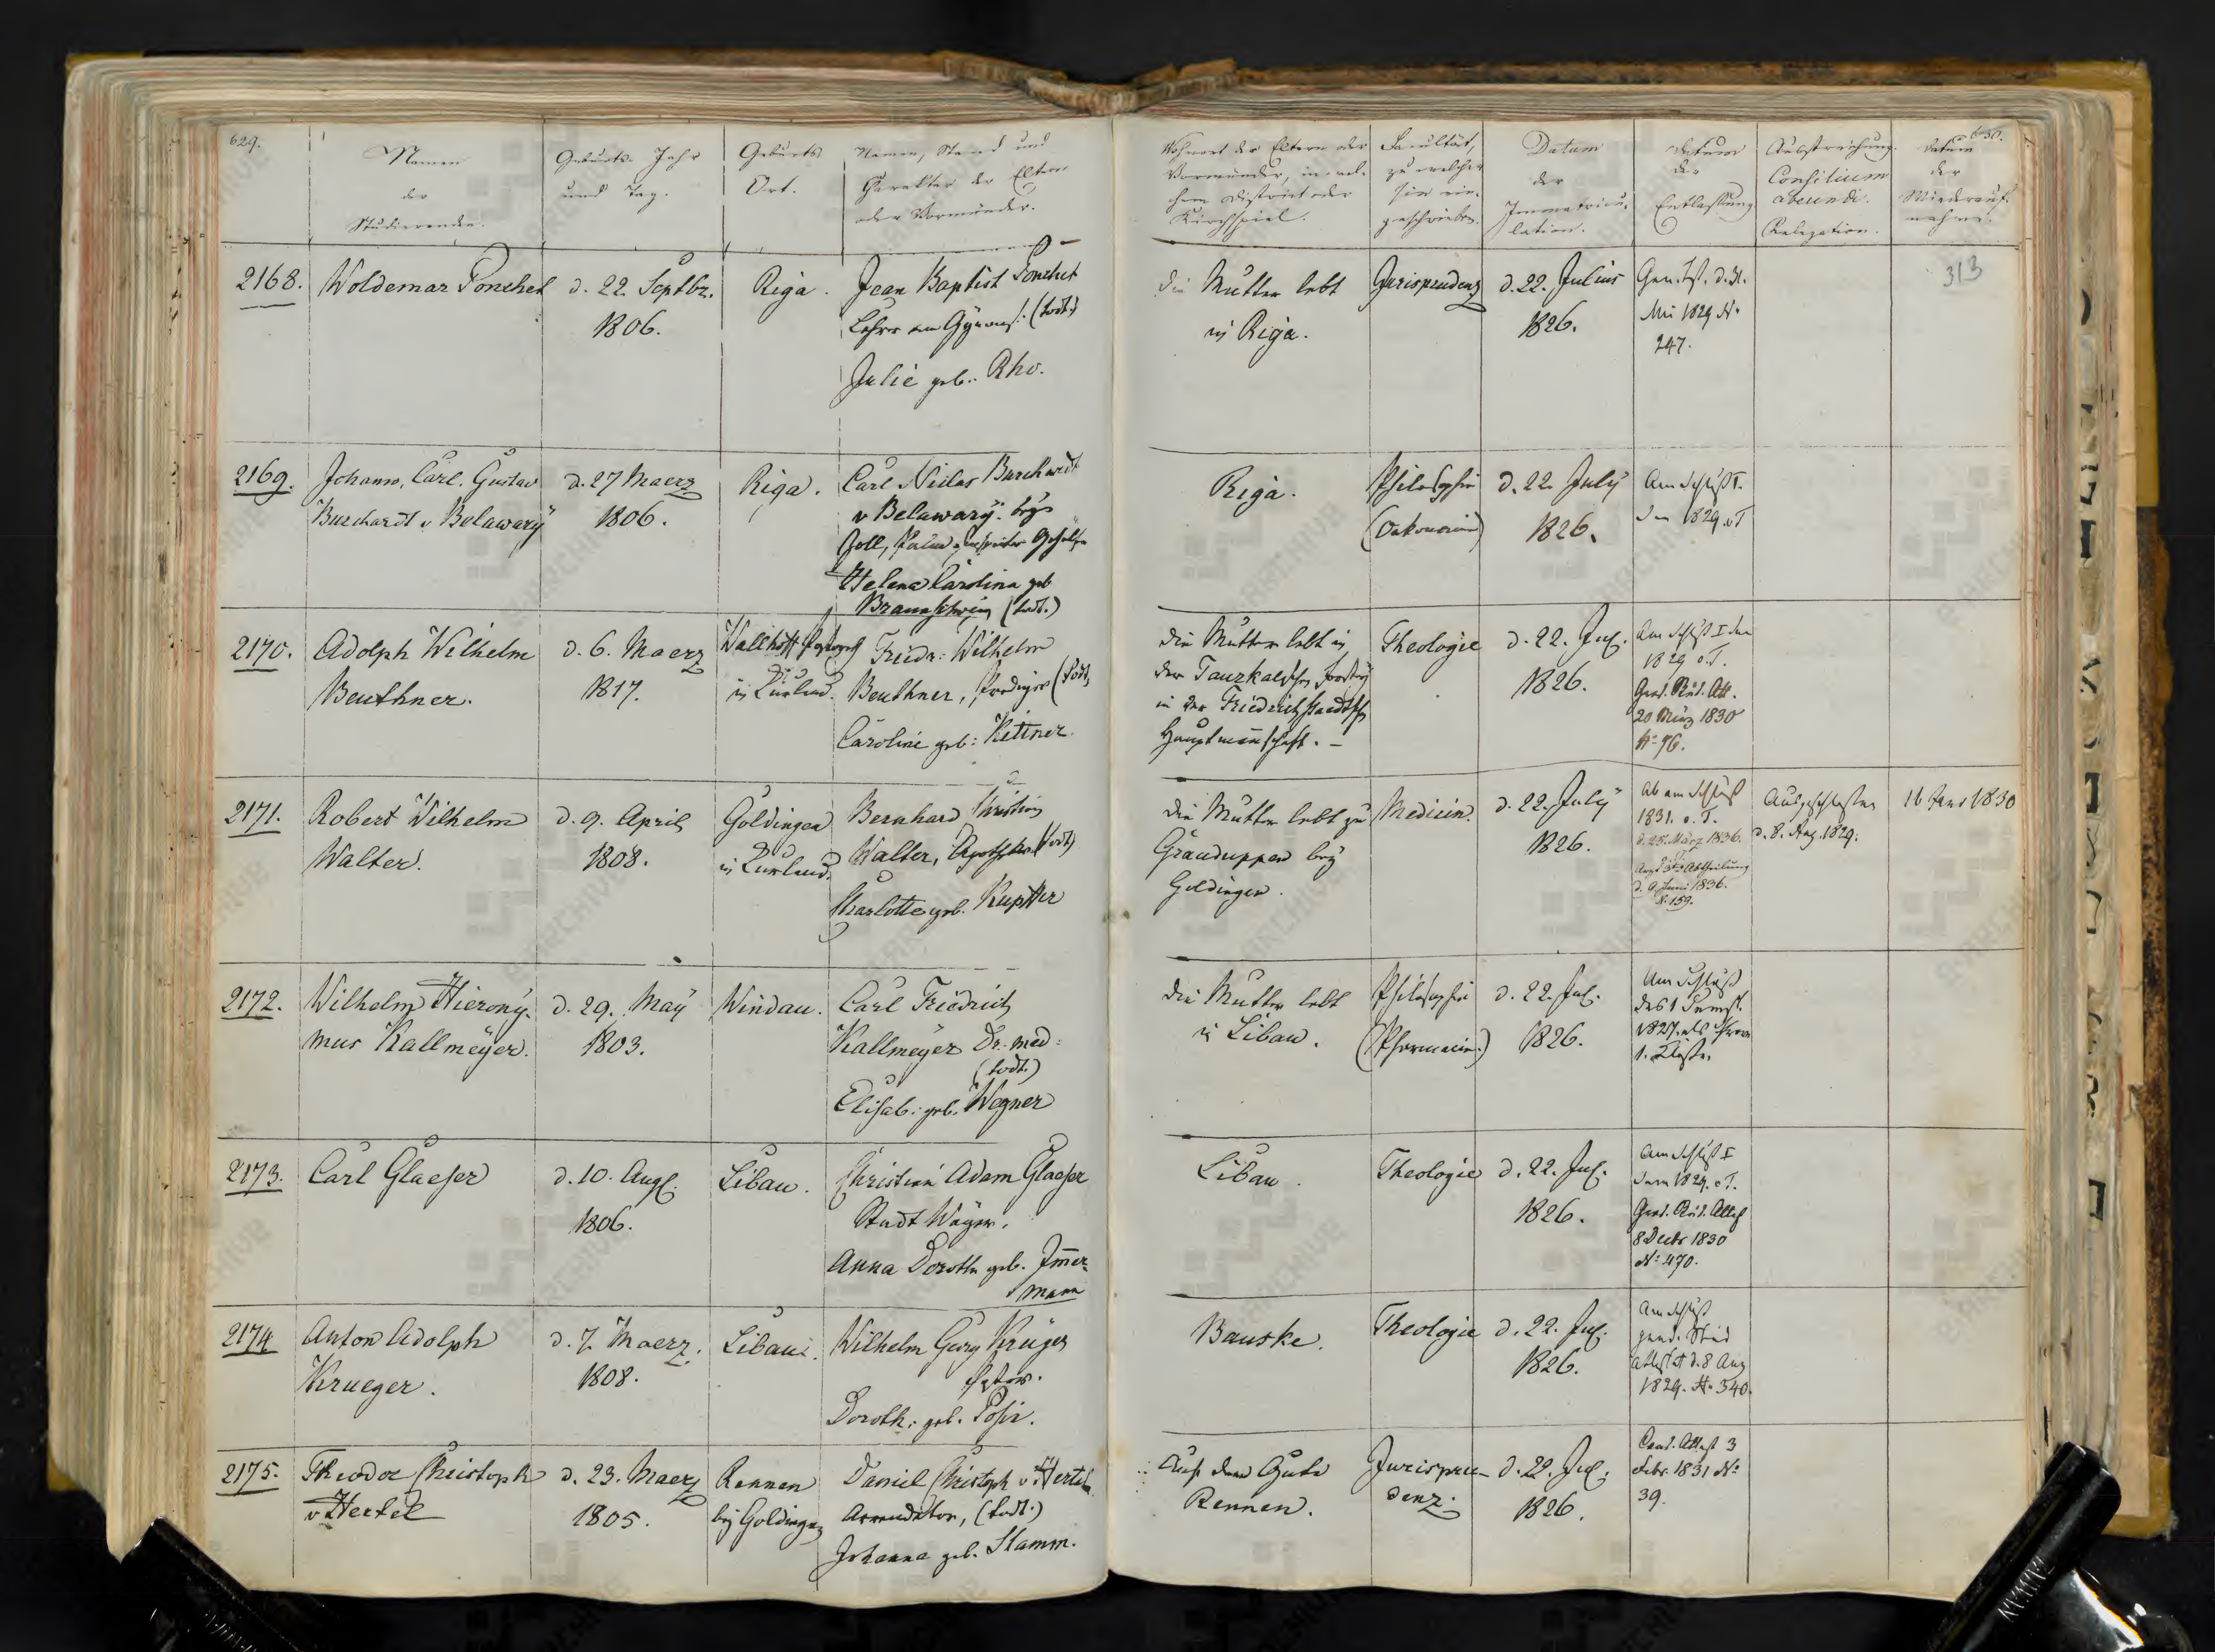 629.
Namen
der
Studierenden.
Geburts- Jahr
und Tag.
Geburts
Ort.
Namen, Stand und
Charakter der Eltern
oder Vormünder.
Wohnort der Eltern oder
Vormünder, in wel-
chem District oder
Kirchspiel.
Facultät,
zu welcher
sie ein-
geschrieben.
Datum
der
Immatricu-
lation.
Datum
der
Entlassung
Ausstreichung.
Consilium
abeundi.
Relegation.
630.
Datum
der
Wiederauf-
nahme.
313
2168. Woldemar Ponchet
d. 22. Septbr.
1806.
Riga.
Jean Baptist Ponchet
Lehrer am Gymnas. (todt)
Julie geb. Rho.
die Mutter lebt
in Riga.
Jurisprudenz
d. 22. Julius
1826.
Mai 1829 N.
247.
2169. Johann, Carl, Gustav
Burchardt v Belawary
d. 27 Maerz
1806.
Riga.
Carl Niclas Burchardt
v Belawary. bey
Helena Carolina geb
Braunschweig (todt.)
Riga.
Philosophie
(Oekonomie)
d. 22. July
1826.
Am Schluß I.
Sem 1829 o T
2170. Adolph Wilhelm
Beuthner.
d. 6. Maerz
1817.
Wallhoff Pastorath
in Curland.
Friedr: Wilhelm
Beuthner, Prediger (todt,
Caroline geb: Kettner.
die Mutter lebt in
der Taurkalnschen Forstey
in der Friedrichstaedtschen
Hauptmannschaft. –
Theologie
d. 22. Jul.
1826.
Am Schluß I Sem
1829 o. T.
Grad. Stud. Att.
20 März 1830
N: 96.
2171. Robert Wilhelm
Walter.
d. 9. April
1808.
Goldingen
in Curland.
Bernhard Christian
Walter, Apotheker (todt)
Charlotte geb. Kupffer
die Mutter lebt zu
Grauduppen bey
Goldingen.
Medicin.
d. 22. July
1826.
Ab am Schluß
1831. o. T.
d. 25. März 1836.
Arzt 3ter Abtheilung
d. 9 Juni 1836.
N. 159.
Ausgeschlossen
d. 8. Aug. 1829.
16 Janr 1830
2172. Wilhelm Hierony-
mus Kallmeyer.
d. 29. May
1803.
Windau.
Carl Friedrich
Kallmeyer Dr. med:
(todt.)
Elisab: geb. Wegner
die Mutter lebt
in Libau.
Philosophie
(Pharmacie.)
d. 22. Jul.
1826.
Am Schluß
des 1 Semest.
1827. als Prov
1. Classe.
2173. Carl Glaeser
d. 10. Aug.
1806.
Libau.
Christian Adam Glaeser
Stadt Wäger.
Anna Doroth geb. Immer-
mann
Libau.
Theologie
d. 22. Jul.
1826.
Am Schluß I
Sem 1829. o T.
Grad. Stud. Attest
8 Decbr 1830
N: 470.
2174 Anton Adolph
Krueger.
d. 7. Maerz.
1808.
Libau.
Wilhelm Georg Krüger
Doroth: geb. Posir.
Bauske.
Theologie
d. 22. Jul.
1826.
Am Schluß
grad. Stud
attestat d. 8 Aug
1829. N. 340.
2175. Theodor Christoph
v Hertel
d. 23. Maerz
1805.
Rennen
bey Goldingen
Daniel Christoph v. Hertel
Arrendator, (todt.)
Johanna geb. Stamm.
Auf dem Gute
Rennen.
Jurispru-
denz.
d. 22. Jul.
1826.
Cand. Attest 3
Febr. 1831 N:
39.